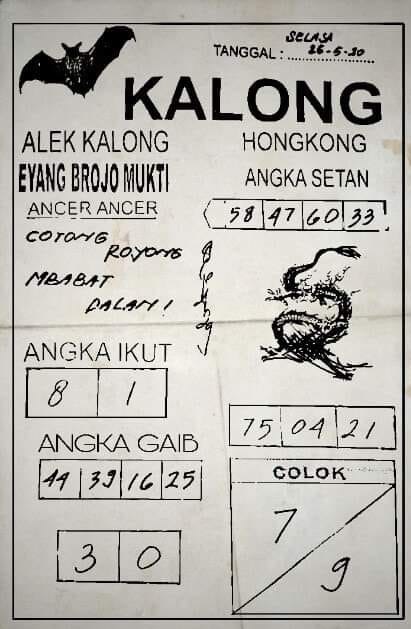 SELASA
TANGGAL : 26-5-20
KALONG
ALEK KALONG
EYANG BROJO MUKTI
ANCER ANCER
GOTONG
ROYONG
MBABAT
DALAN!
HONGKONG
ANGKA SETAN
58 47 60 33
ANGKA IKUT
8 1
75 04 21
ANGKA GAIB
44 39 16 25
3 0
COLOK
7
9